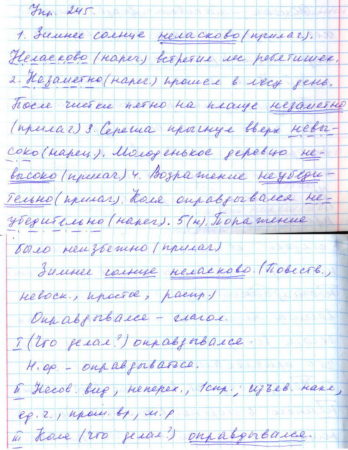 Упр. 245
1. Зимнее солнце неласково (прилаг).
Неласково (нареч) встретил лес ребятишек.
2. Незаметно (нареч) прошел в лесу день.
После чистки пятно на плаще незаметно
(прилаг) 3. Сережа прыгнул вверх невы-
соко (нареч). Молоденькое деревцо не-
высоко (прилаг) 4. Возражение неубеди-
тельно (прилаг). Коля оправдывался не-
убедительно (нареч). 5(н). Поражение
было неизбежно (прилаг)
Зимнее солнце неласково. (Повеств.,
невоск., простое, распр.)
Оправдывался – глагол.
I (Что делал?) оправдывался.
Н.ф. – оправдываться.
II Несов. вид, неперех., 1 спр.; изъяв. накл.,
ед. ч., прош. вр., м. р
III Коля (что делал?) оправдывался.